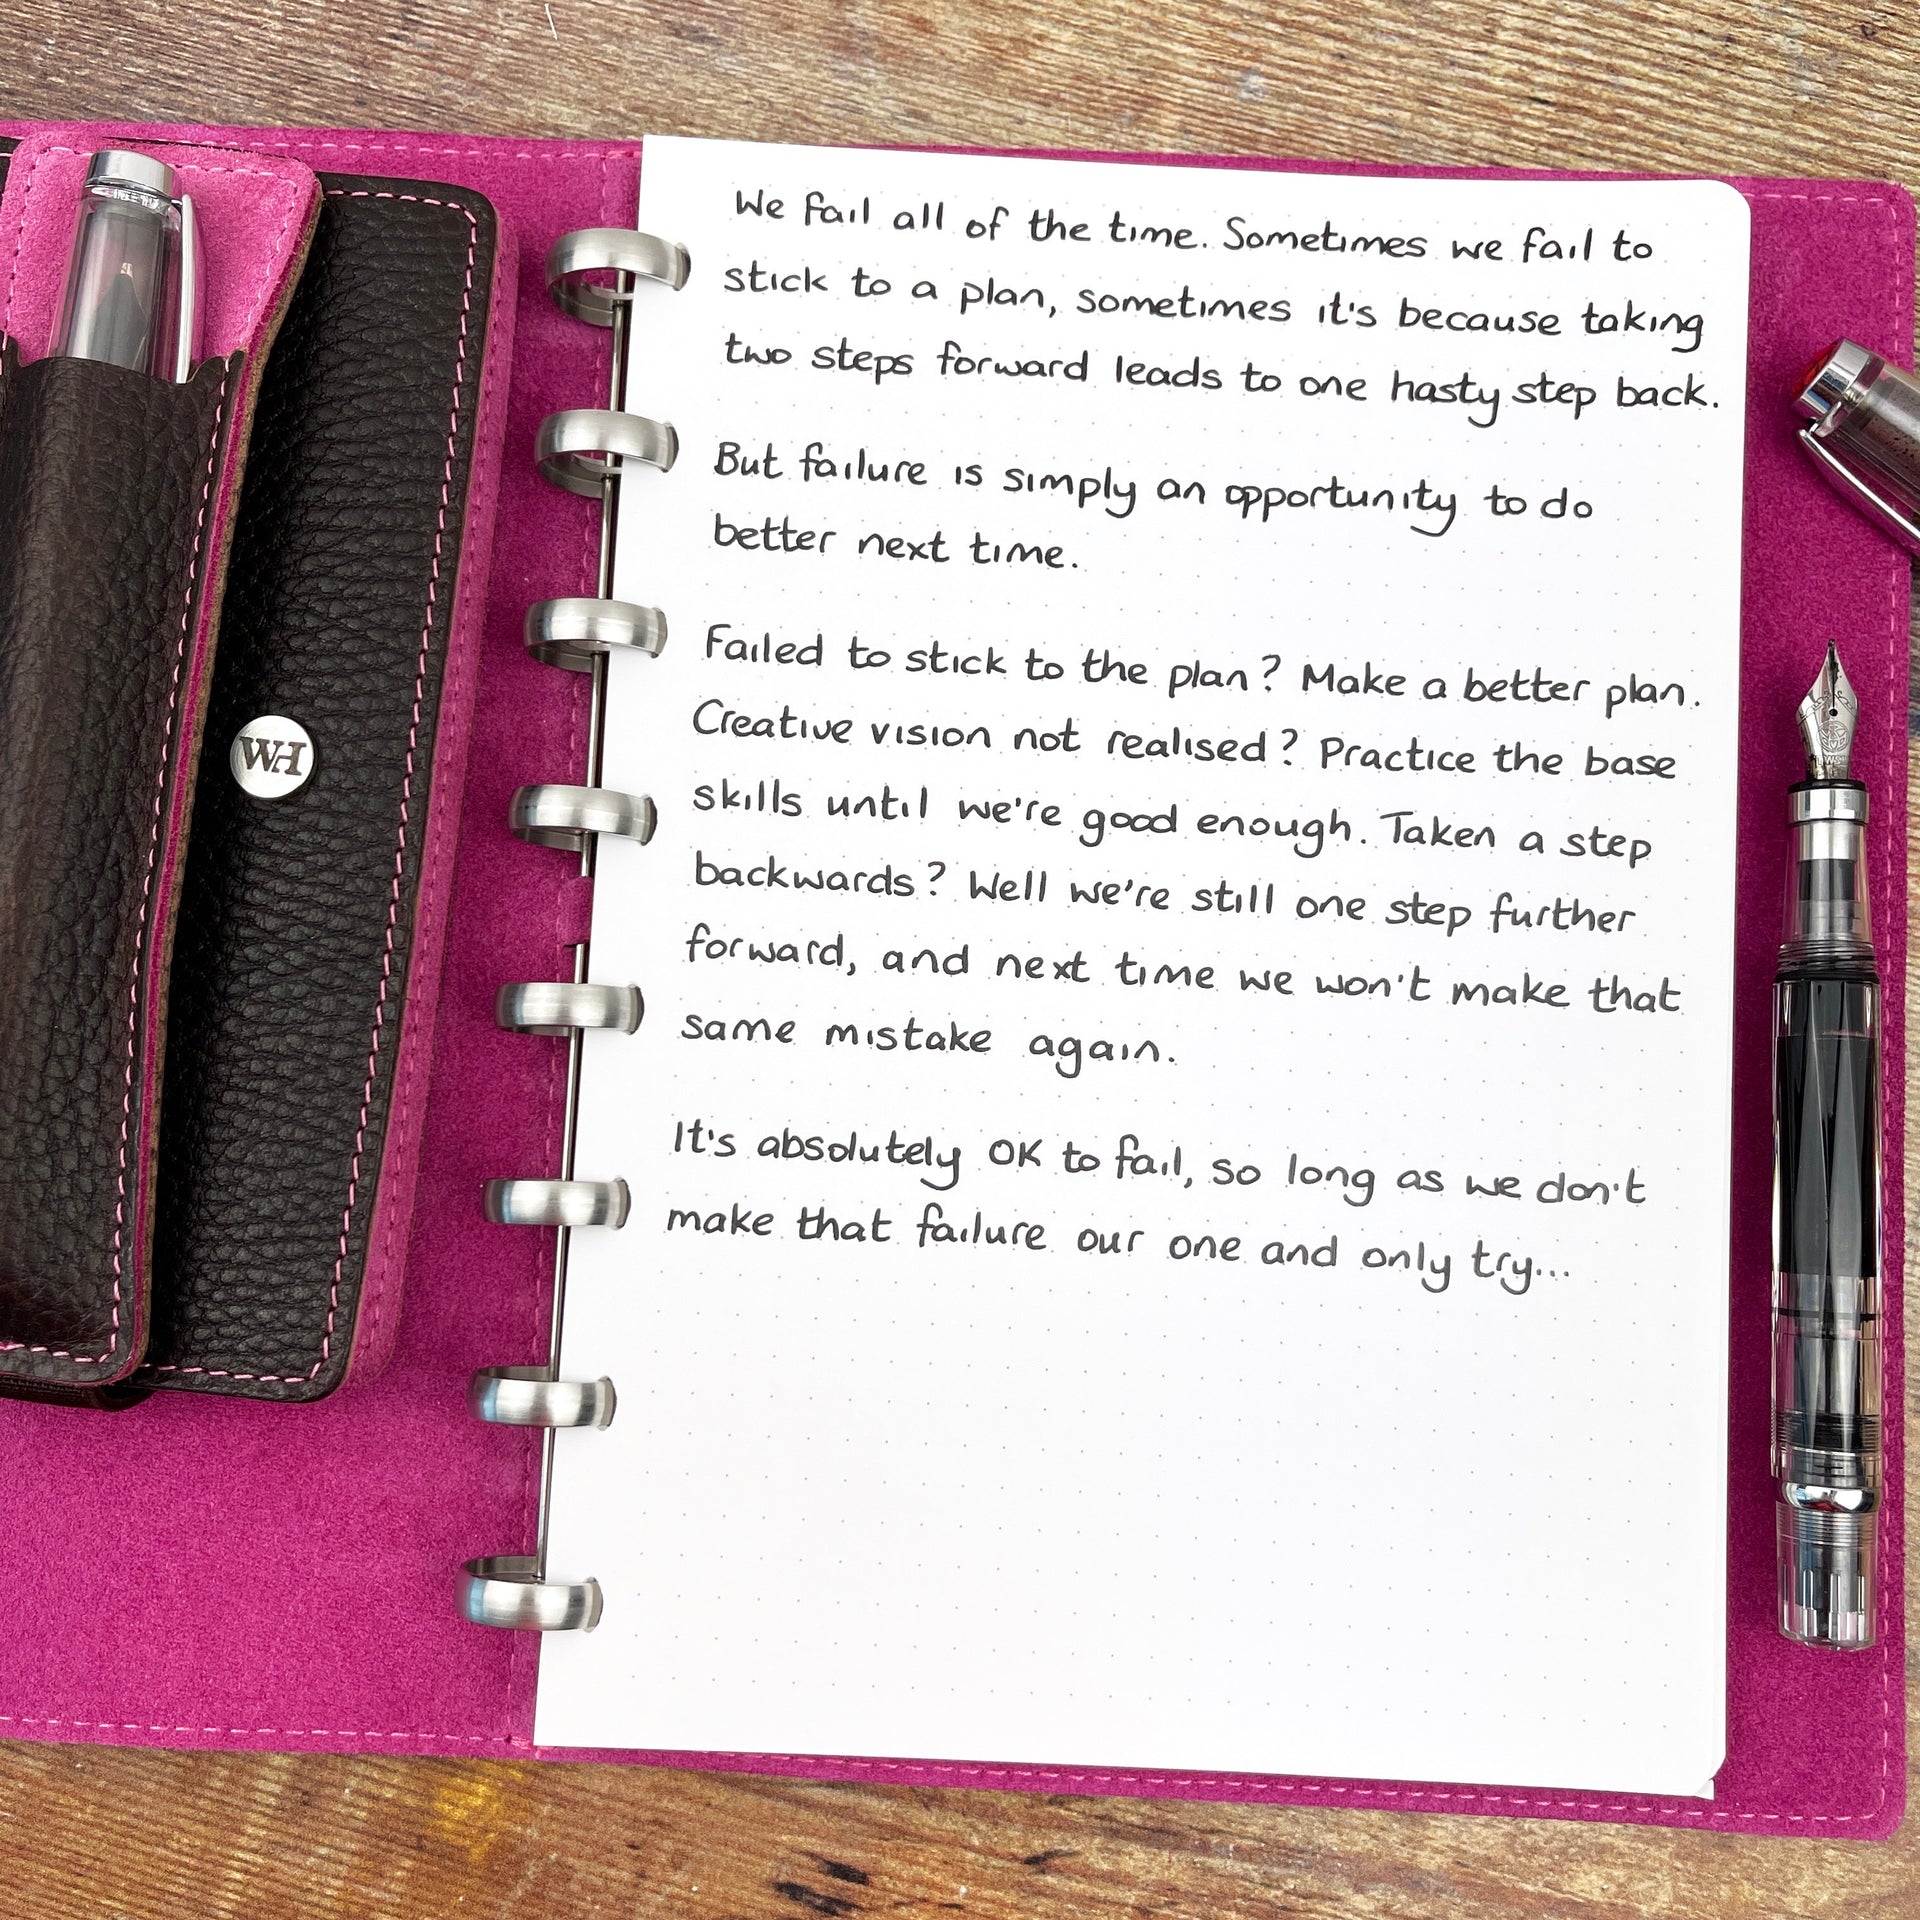 We fail all of the time. Sometimes we fail to
stick to a plan, sometimes it's because taking
two steps forward leads to one hasty step back.
But failure is simply an opportunity to do
better next time.
Failed to stick to the plan? Make a better plan.
Creative vision not realised? Practice the base
skills until we're good enough. Taken a step
backwards? Well we're still one step further
forward, and next time we won't make that
same mistake again.
It's absolutely OK to fail, so long as we don't
make that failure our one and only try...
WH